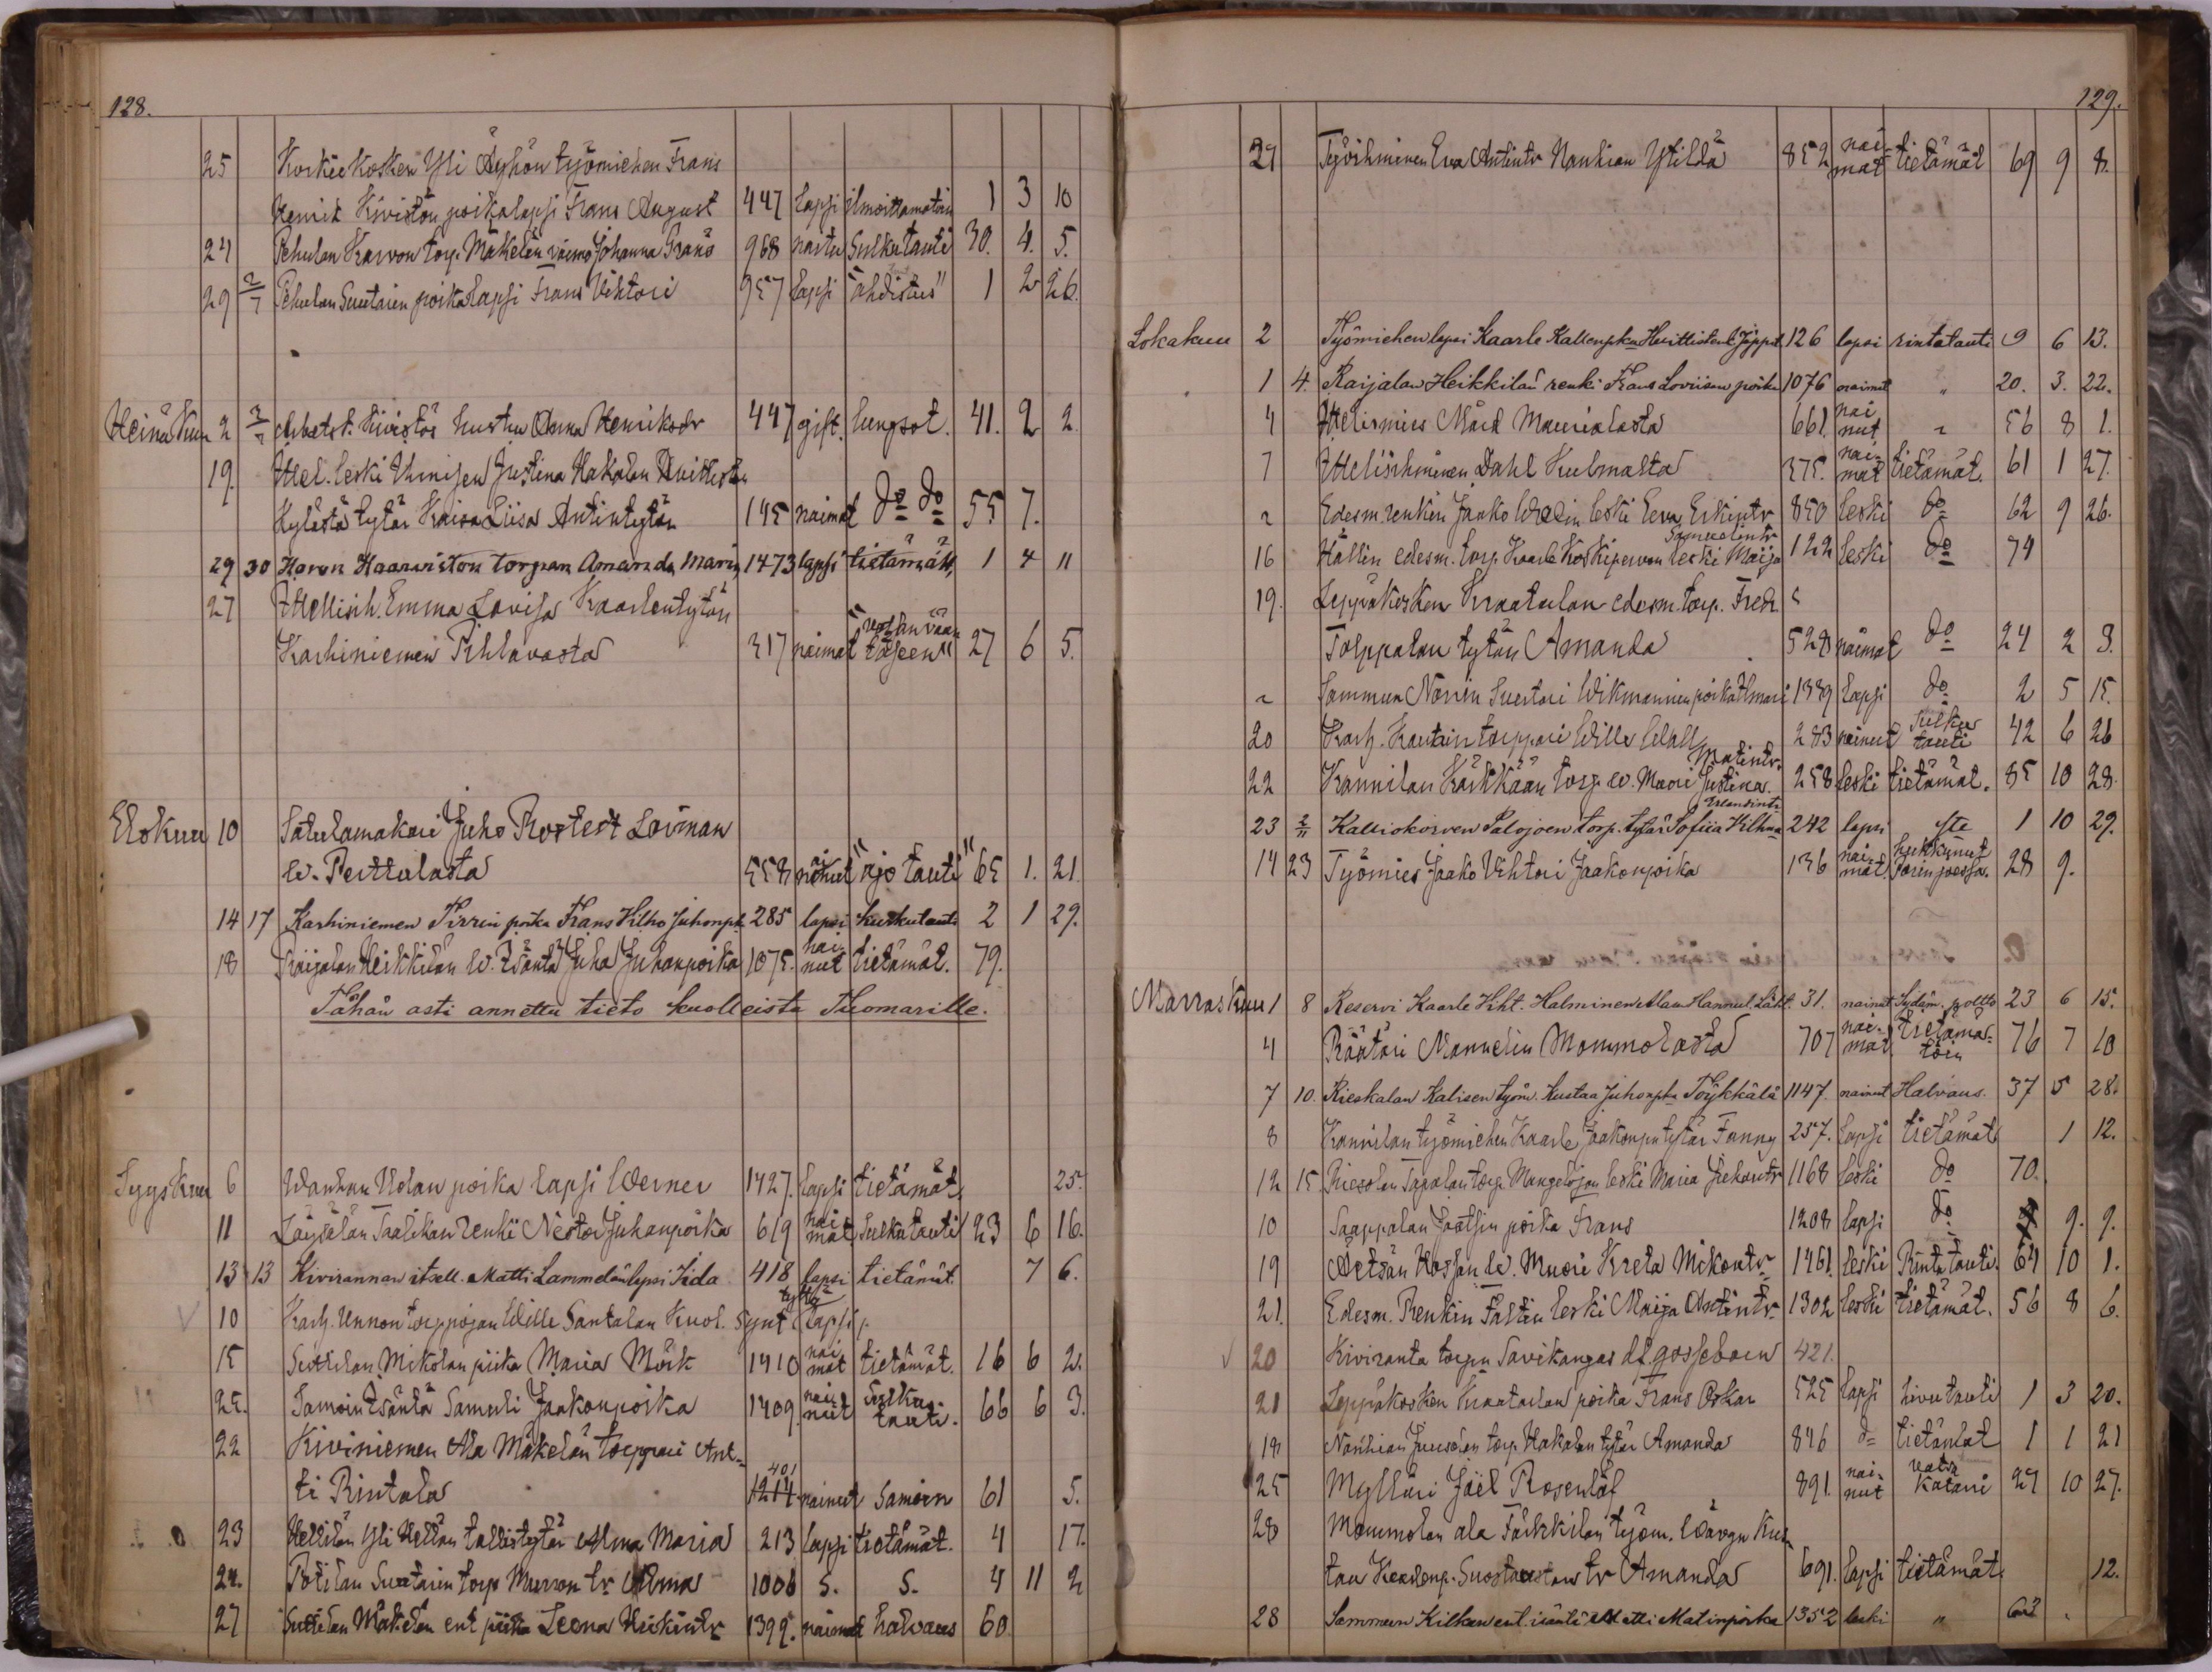 128.
25 Korkeekosken Yli Äyhön työmiehen Frans
Henrik Kivistön poikalapsi Frans August 447 lapsi ilmoittamatoin 1 3 10
24 Pehulan Karvon torp. Mäkelän vaimo Johanna Frans 968 naitu Sulkutauti 30. 4. 5.
29 2/7 Pehulan Suutarin poikalapsi Frans Vihtori 957 lapsi "ahdistus" 1 2 26.
Heinä Kuu 2 3/7 Arbetsk. Kivistös hustru Anna Henriksdr 447 gift. lungsot. 41. 2 2.
19. Itsel. leski Justina Hakalan
Kylästä tytär Kaisa Liisa Antintytär 145 naimat do do 55 7.
29 30 Haron Haarviston torpan Amanda Maria 1473 lapsi tietämät, 1 4 11
27 Itsellish. Emma Lovisa Kaarlentytär
Karhiniemen Pihlavasta 317 naimat 27 6 5.
Elokuu 10 Satulamakari Juho Rostedt Lövman
W. Perttulasta 558 nainut "ajo tauti" 65 1. 21.
14 17 Karhiniemen Tirrin poika Frans Vilho Juhonpk 285 lapsi kurkutauti 2 1 29.
18 Raijalan Heikkilän W. Isäntä Juha Juhanpoika 1075. nainut tietämät. 79.
Tähän asti annettu tieto kuolleista Tuomarille.
Syyskuu 6 Wanhan Uolan poika lapsi Werner 1427. lapsi tietämät. 25.
11 Löysälän Taalikan renki Nestor Juhanpoika 619 naimat. Sulkutauti 23 6 16.
13 13 Kivirannan itsell. Matti Lammelan lapsi Iida 418 lapsi tietämät. 7 6.
10 Karh. Unnon torpparjan Wille Santalan Kuol. Synt. tyttö lapsi
15 Suttilan Mikolan piika Maria Mörk 1410 naimat tietämät. 16 6 2.
25. Samoin Isäntä Samuli Jaakonpoika 1409. nainut Sulkutauti. 66 6 3.
22 Kiviniemen Ala Mäkelän torppari Ant-
ti Rintala 401 1214. nainut Samoin 61 5.
23 Kellilän Yli Kellän tallistytär Alma Maria 213 lapsi tietämät. 4 17.
24. Potilan Suutarin torp. Murron tr Alma 1006 S. S. 4 11 2
27 Suttilan Mäkelän ent piika Leena Heikintr 1399. naimat halvaus 60
129.
29 Työihminen Eva Antintr Nanhian Ytildä 852 naimat tietämät 69 9 8.
Lokakuu 2 Työmiehen lapsi Kaarle Kallenpka 126 lapsi rintatauti 9 6 13.
1 4. Raijalan Heikkilän renki Frans Loviisan poika 1076 naimat " 20. 3. 22.
4 Itselismies Mård Maurialasta 661. nainut " 56 8 1.
7 Itselisihminen Dahl Kulmasta 375. naimat tietämät. 61 1 27.
" Edesm. renkin Jaako leski Eeva Erkintr 850 leski do 62 9 26.
16 Hällin edesm. torp. Kaarle Koskipervon leski Maija Samuelintr 122 leski do 74
19. Leppäkosken Kraatulan edesm. torp. Fredr.
Tolppalan tytär Amanda 528 naimat do 24 2 3.
" Sammun Norrin Suutari Wikmannin poika Ilmari 1389 lapsi do 2 5 15.
20 Karh. Kautain torppari Wille Wall 283 nainut Sulku tauti 42 6 26
22 Kannilan Kärkkään torp. W. Muori Justina Matintr. 258 leski tietämät. 85 10 28.
23 2/11 Kalliokorven Salojoen torp. tytär Sofiia Vilhma 242 lapsi 1 10 29.
14 23 Työmies Jaako Vihtori Jaakonpoika 136 naimat. hukkunut Porinjoessa. 28 9.
Marraskuu 1 8 Reservi Kaarle Viht. Halminen Alan Hannul. 31. nainut Sydäm. poltto 23 6 15.
4 Räätäri Mannelin Mommolasta 707 naimat tietämätöin 76 7 10
7 10. Kieskalan Kalisen työm. Kustaa Juhonpka Töykkälä 1147. nainut Halvaus. 37 5 28.
8 Kannilan työmiehen Kaarle Jaakonpn tytär Fanny 257. lapsi tietämät 1 12.
12 15 Riesolan Tapalan torp. Mangelojan leski Maria Juhantr 1168 leski do 70.
10 Saappalan Jaatsin poika Frans 1208 lapsi do 9. 9.
19 Äetsän Kossin W. Muori Kreta Mikontr 1461. leski Rintatauti. 64 10 1.
21. Edesm. Renkin Faltin leski Maija Antintr. 1302 leski tietämät. 56 8 6.
20 Kiviranta torpn Savikangas df. gossebarn 421.
21 Leppäkosken Kraatulan poika Frans Oskar 525 lapsi hivutauti 1 3 20.
18 Nanhian Juusolan torp. Hakalan tytär Amanda 846 do tietämät 1 1 21
25 Mylläri Joel Rosenlöf 891. nainut vatsa katari 29 10 27.
28 Mommolan ala Färkkilän työm. Kus-
tan Amanda 691. lapsi tietämät. 12.
28 Sammun Kilkun ent. isäntä Matti Matinpoika 1352 leski "